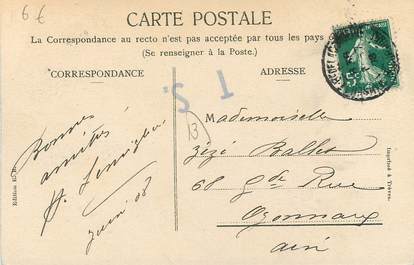 6€
CARTE POSTALE
La Correspondance au recto n'est pas acceptée par tous les pays
(Se renseigner à la Poste.)
CORRESPONDANCE
ADRESSE
T S.
Bonnes
amitiés
Juin 08
13
Mademoiselle
Zézé Ballet
68 Gde Rue
Oyonnax
Ain
Imprimé à Trèves.